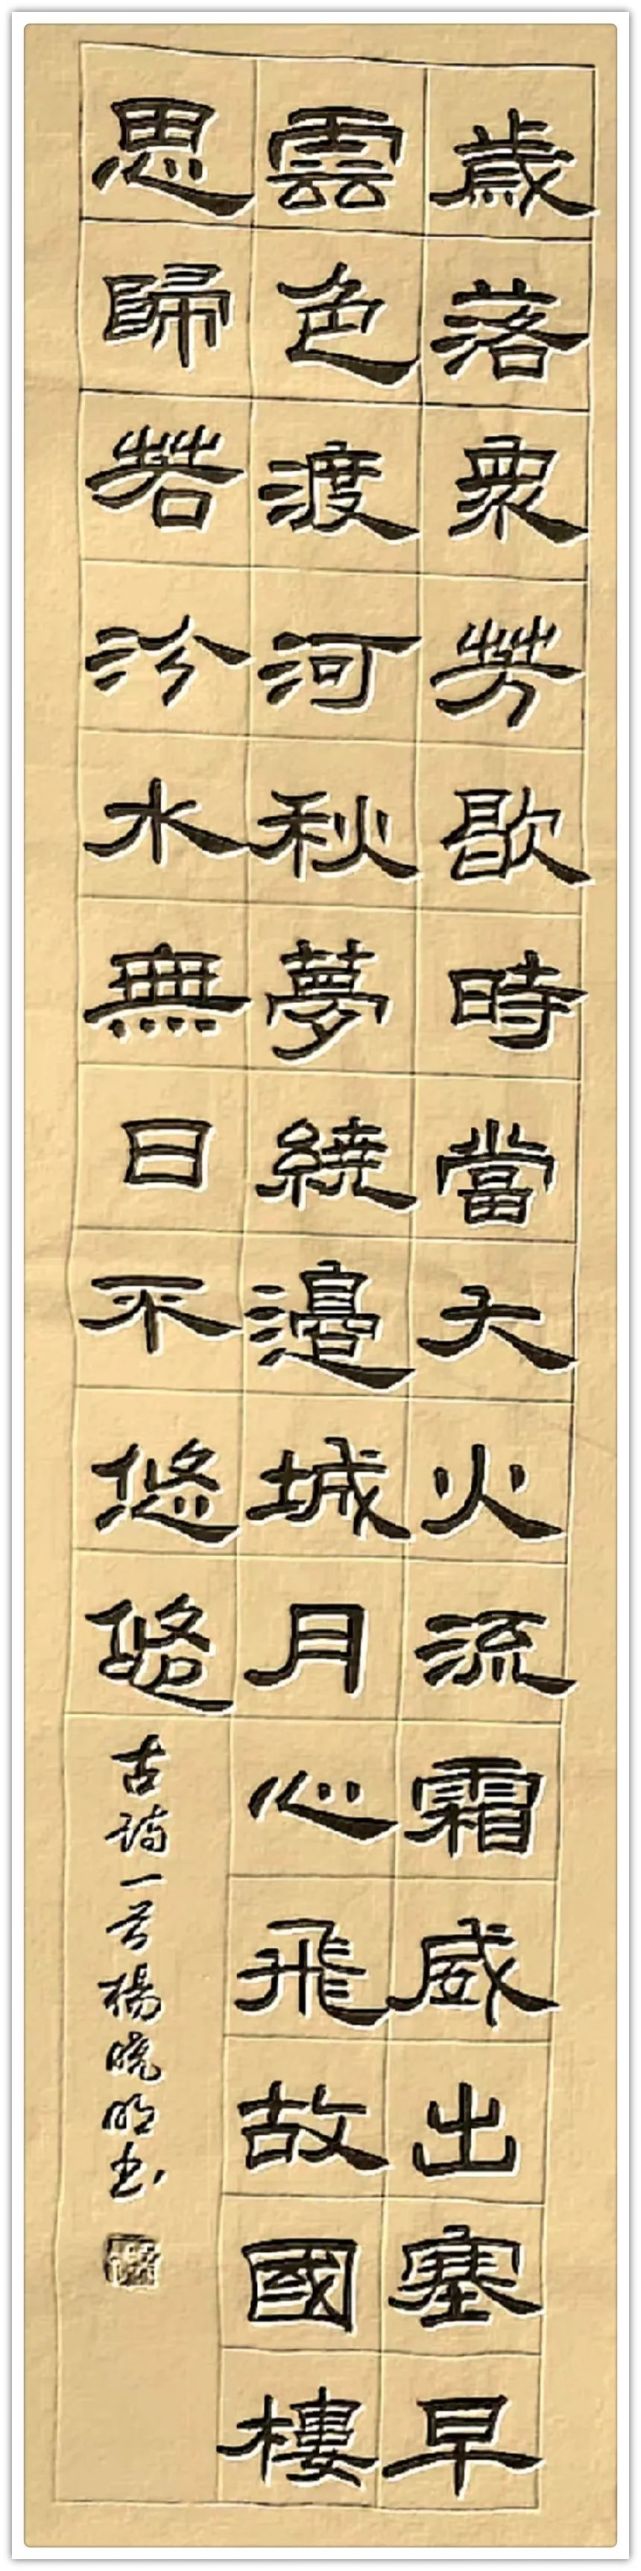 歲落衆芳歇時當大火流霜威出塞早
雲色渡河秋夢繞邊城月心飛故國樓
思歸若汾水無日不悠悠
古詩一首楊曉明书